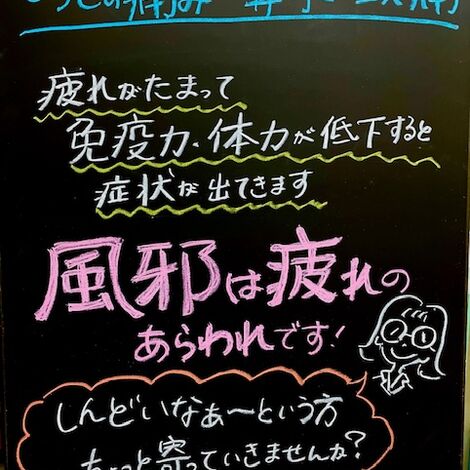 疲れがたまって
免疫力・体力が低下すると
症状が出てきます
風邪は疲れの
あらわれです!
しんどいなぁ〜という方
ちょっと寄っていきませんか?